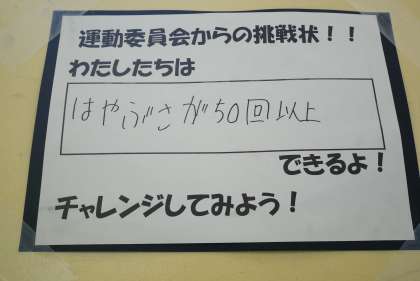 運動委員会からの挑戦状！！
わたしたちは
はやぶさが50回以上
できるよ！
チャレンジしてみよう！